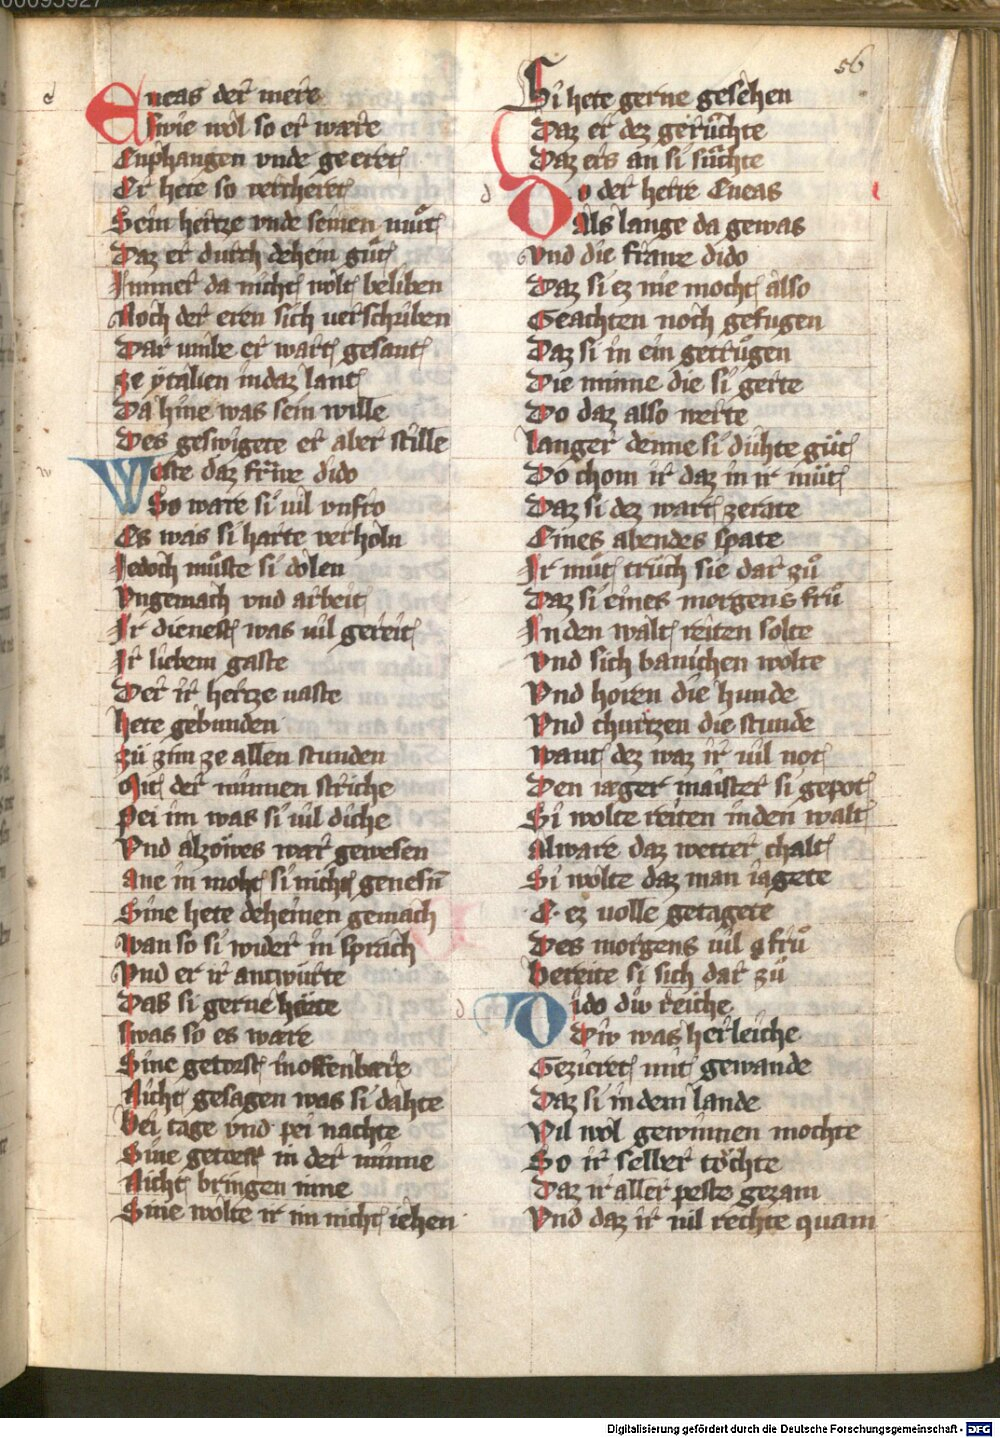 00095927
56
e
Eneas der mere
Swie wol so er wære
Enphangen vnde geeret
Er hete so vercheret
Sein hertze vnde seinen muͦt
Daz er durch dehein guͦt
Immer da nicht wolt beliben
Noch der eren sich verschriben
Dar vmbe er wart gesant
ze ytalien in daz lant
Da hine was sein wille
Des geswigete er aber stille
w
Weste daz frawe dido
So ware si vil vnfro
Es was si harte verholn
Iedoch muͦste si dolen
Vngemach vnd arbeit
Ir dienest was vil gereit
Ir liebem gaste
Der ir hertze vaste
hete gebunden
zu zim ze allen stunden
Mit der minnen striche
Pei im was si vil diche
Vnd alzowes war gewesen
Ane in moht si nicht genesn
Sine hete deheinen gemach
Wan so si wider in sprach
Vnd er ir antwurte
Das si gerne horte
swas so es ware
Sine getorst in offenbare
Nicht gesagen was si dahte
Bei tage vnd pei nachte
Sine getorst in der minne
Nicht bringen inne
Sine wolte ir im nicht iehen
Si hete gerne gesehen
Daz er dez geruchte
Daz ers an si suchte
d
Do der herre Eneas
Als lange da gewas
Vnd die frawe dido
Daz si ez nie mocht also
Geachten noch gefugen
Daz si in ein getruͦgen
Die minne die si gerte
Do daz also werte
langer denne si duhte guͦt
Do chom ir daz in ir muͦt
Daz si dez wart zerate
Eines abendes spate
Ir muͦt truch sie dar zuͦ
Daz si eines morgens fruͦ
In den walt reiten solte
Vnd sich banichen wolte
Vnd horen die hunde
Vnd churtzen die stunde
Want dez waz ir vil not
Den iager maister si gepot
Si wolte reiten in den walt
Alware daz wetter chalt
Si wolte daz man iagete
E. ez volle getagete
Des morgens vil fruͦ
Bereite si sich dar zuͦ
d
Dido diw reiche
Diw was herleiche
Gezieret mit gewande
Daz si in dem lande
Vil wol gewinnen mochte
So ir selber tochte
Daz ir aller peste gezam
Vnd daz ir vil rechte quam
Digitalisierung gefördert durch die Deutsche Forschungsgemeinschaft - DFG